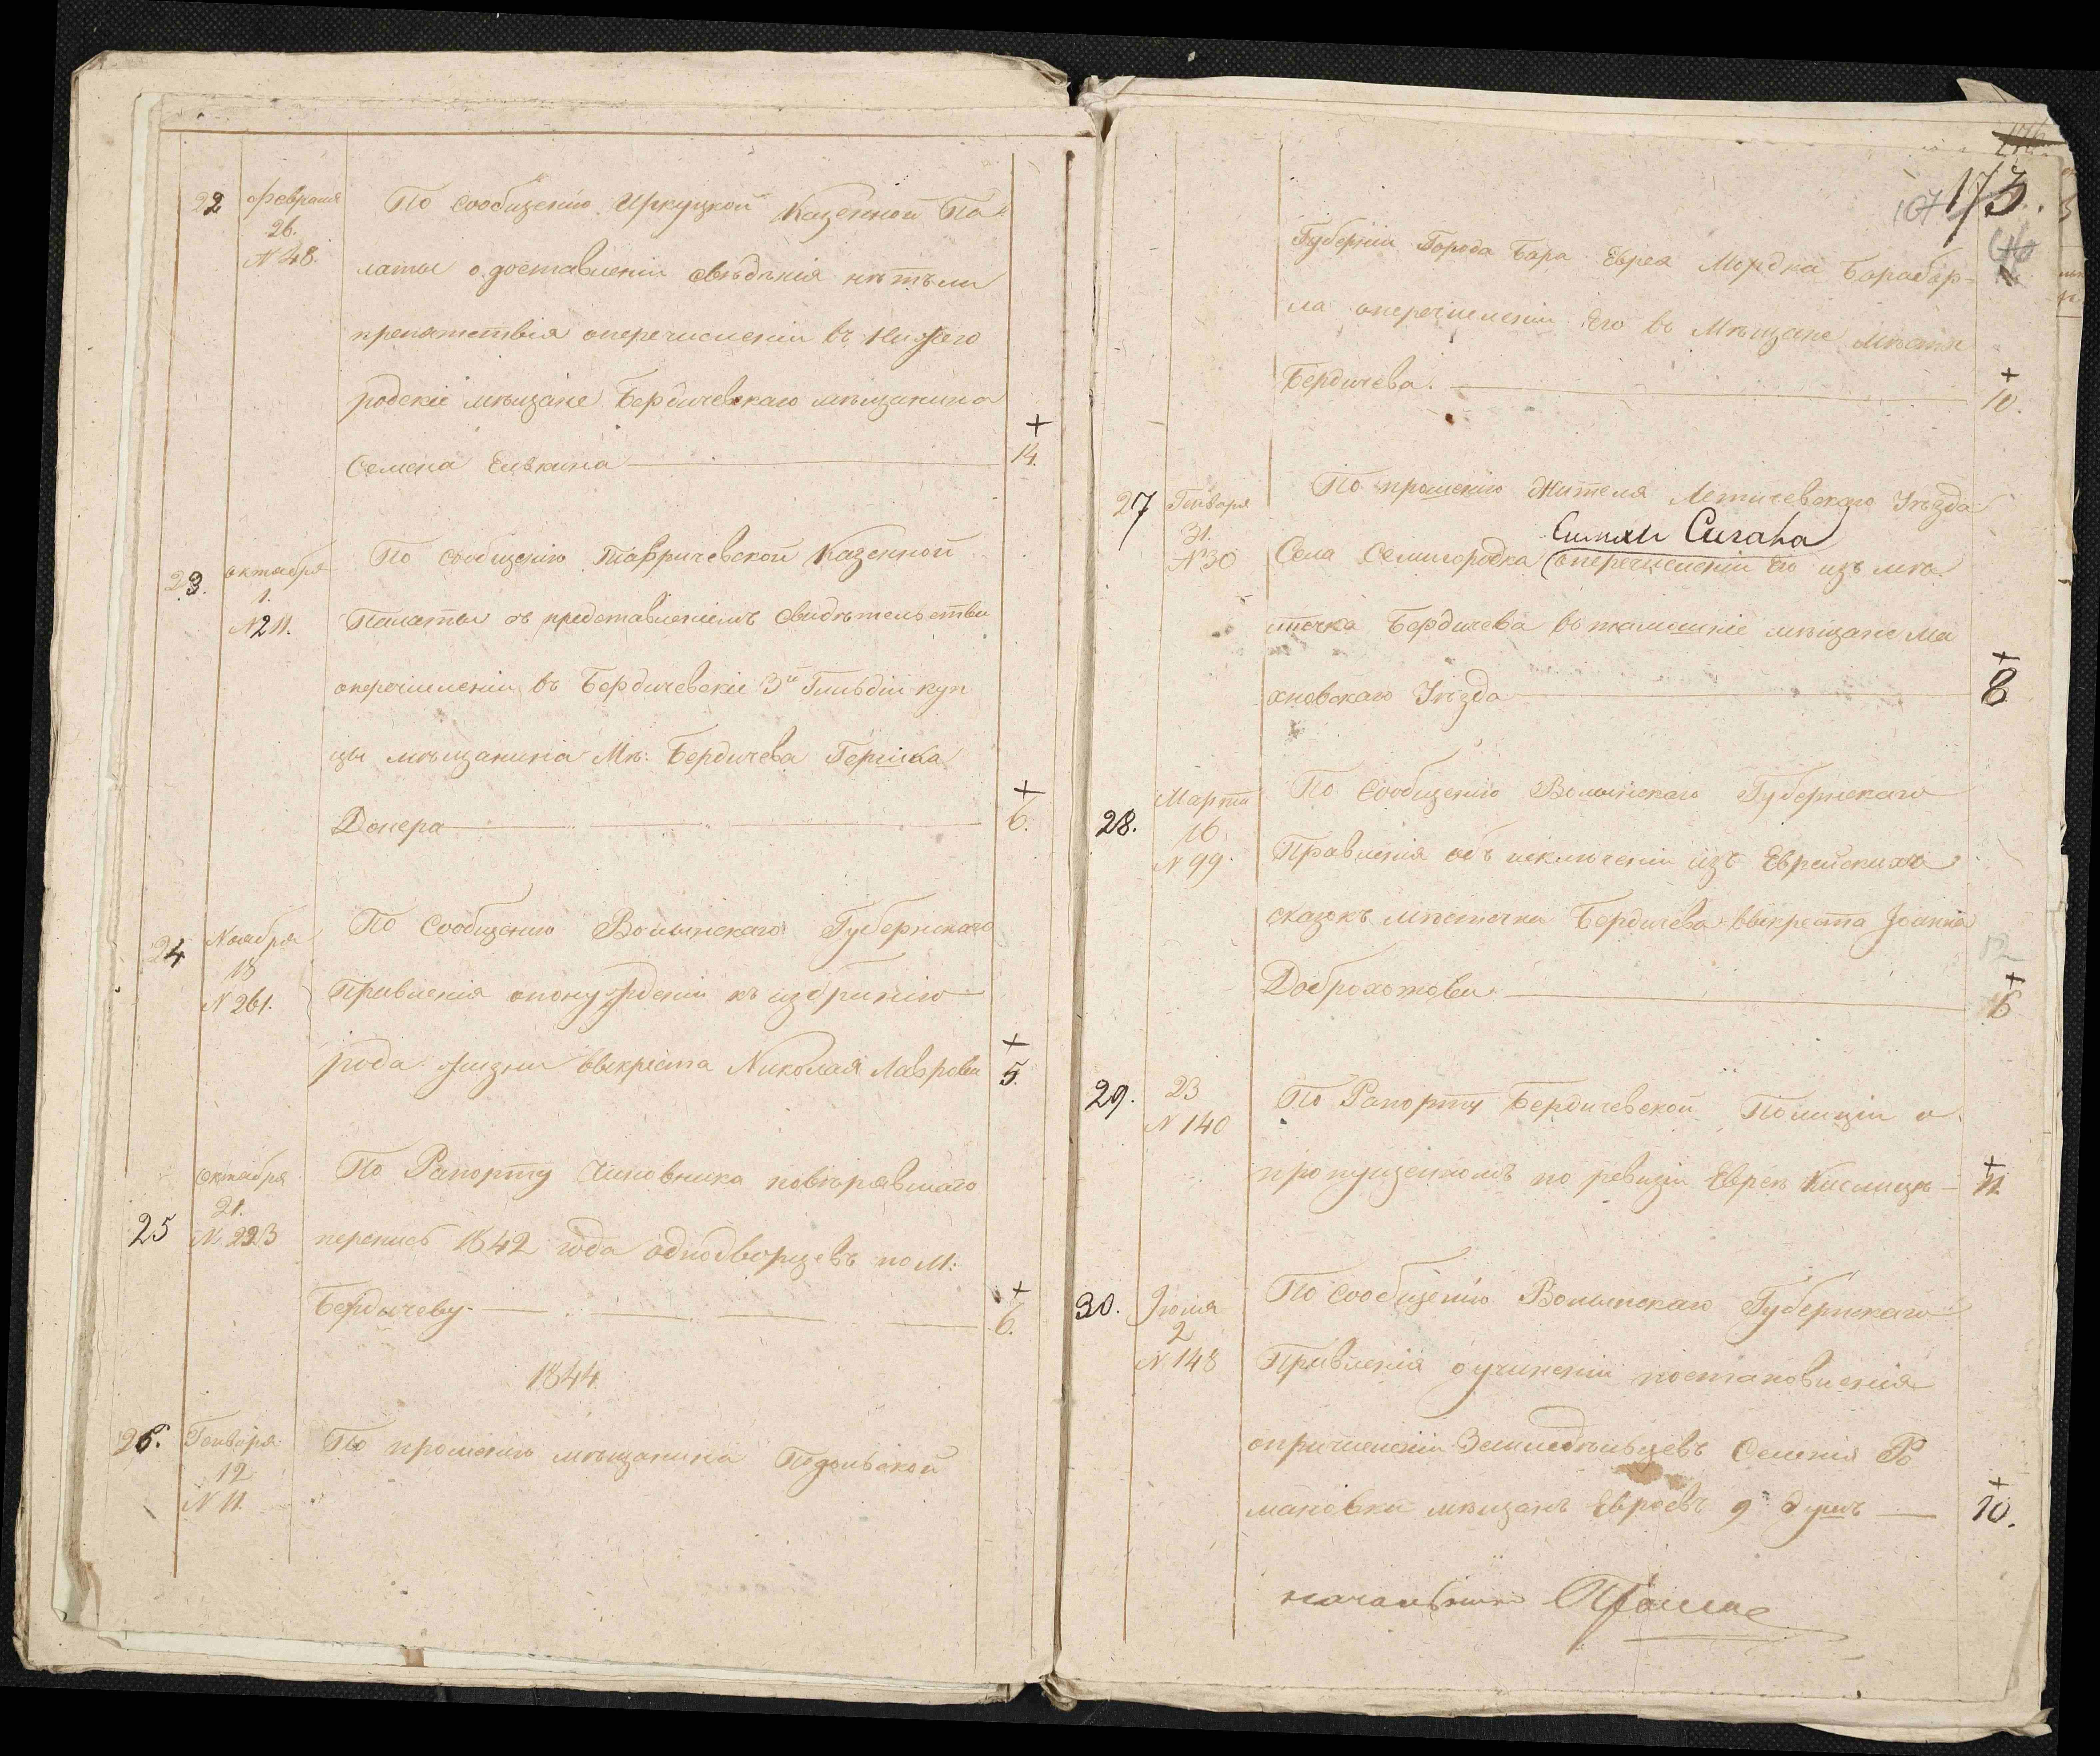 22 Февраля 26. N 48. По сообщенію Иркуцкой Казенной Па-
латы о доставленіи свѣдѣнія нѣтъ ли
препятствія оперечисленіи въ Нижего
родскіе мѣщане Бердичевскаго мѣщанина
Семена Еливкина 14.
23. октября 1. N 211. По сообщенію Таврической Казенной
Палаты съ представленіемъ свидѣтельства
оперечисленіи въ Бердичевскіе 3й Гильдіи куп
цы мѣщанина Мѣ: Бердичева Гершка
Донера 6.
24 Ноября 18 N 261. По сообщенію Волынскаго Губернскаго
Правленія опонужденіи къ избранію
рода жизни выкреста Николая Лаврова 5.
25 Октября 21. N. 223 По Рапорту Чиновника повѣрявшаго
перепись 1842 года однодворцевъ по М:
Бердичеву 6.
1844
26. Генваря 12 N 11. По прошенію мѣщанина Подольской
173.
Губерніи Города Бара Еврея Мордка Барабар-
ла оперечисленіи Его въ Мѣщане мѣст:
Бердичева. 10.
27 Генваря 31. N 30 По прошенію Жителя Летичевскаго Уѣзда
Сигала
Села Семигородка оперечисленіи Его изъ мѣ
стечка Бердичева въ тамошніе мѣщане Ма
хновскаго Уѣзда 8
28. Марта 16. N 99. По сообщенію Волынскаго Губернскаго
Правленія объ исключеніи изъ Еврейскихъ
сказокъ мѣстечка Бердичева выкреста Іоанна
12
Доброхотова 6
29. 23 N 140 По Рапорту Бердичевской Полиціи о
пропущенномъ по ревизіи Евреѣ Кислицѣ 11.
30. Іюля 2 N. 148 По сообщенію Волынскаго Губернскаго
Правленія о учиненіи постановленія
опричисленіи Земледѣльцевъ Селенія Ро
мановки мѣщанъ Евреевъ 9 душъ 10.
начальникъ